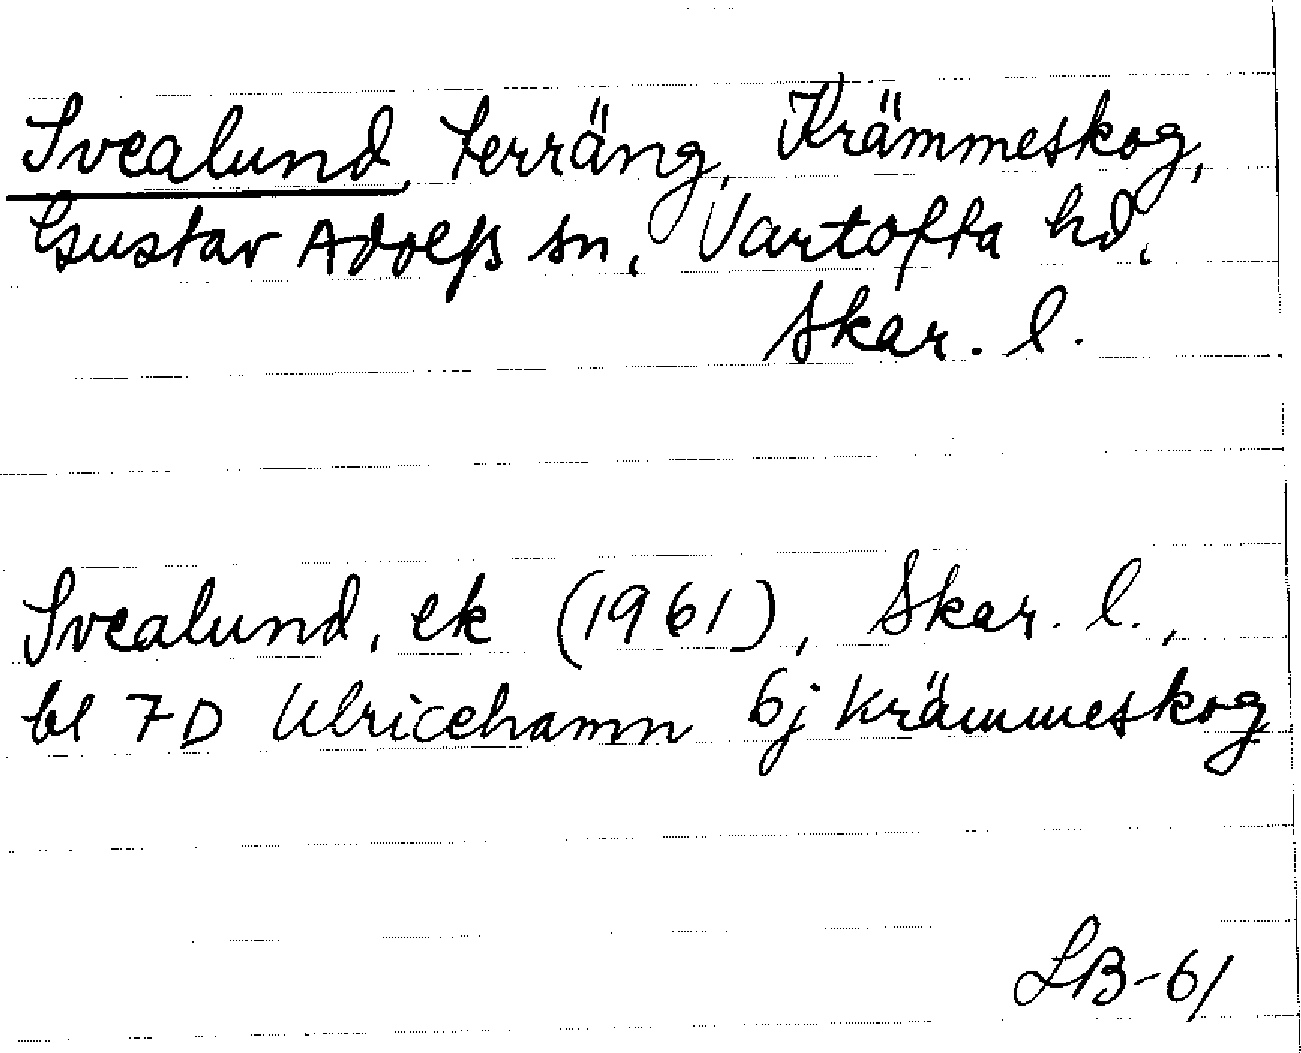 Svealund, terräng, Krämmeskog,
Gustav Adolfs sn, Vartofta hd,
Skar. l.
Svealund, ek (1961), Skar. l.,
bl 7D Ulricehamn 6j Krämmeskog
LB-61